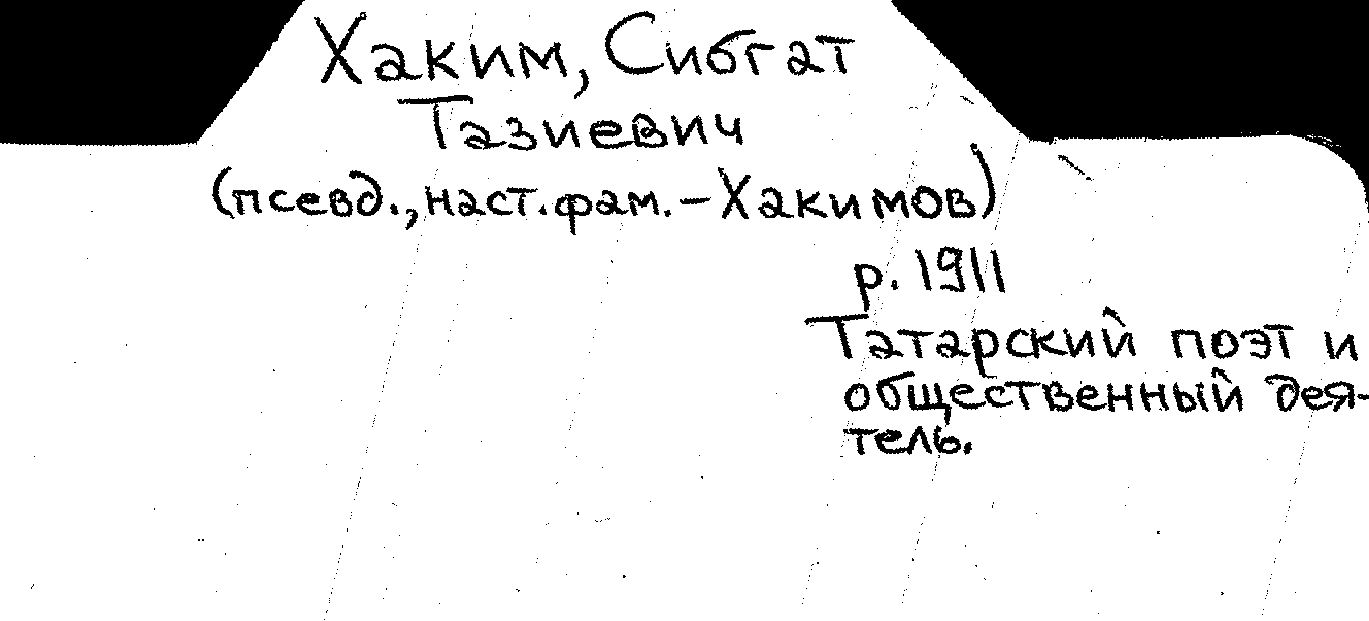 Хаким, Сибгат
Тазиевич
(псевд., наст. фам. – Хакимов)
р. 1911
Татарский поэт и
общественный дея-
тель.